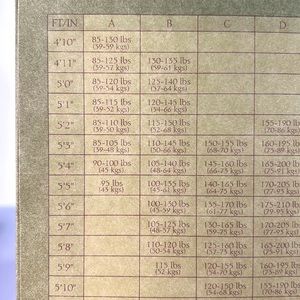 FT/IN A B C D
4'10" 85-130 lbs
(39-59 kgs)
4'11" 85-125 lbs 130-135 lbs
(39-57 kgs) (59-61 kgs)
5'0" 85-120 lbs 125-140 lbs
(39-54 kgs) (57-64 kgs)
5'1" 85-115 lbs 120-145 lbs
(39-52 kgs) (54-66 kgs)
5'2" 85-110 lbs 115-150 lbs 155-190 lbs
(39-50 kgs) (52-68 kgs) (70-86 kgs)
5'3" 85-105 lbs 110-145 lbs 150-155 lbs 160-195 lbs
(39-48 kgs) (50-66 kgs) (68-70 kgs)
5'4" 90-100 lbs 105-140 lbs 145-160 lbs 165-200 lbs
(45 kgs) (48-64 kgs) (66-75 kgs) (75-91 kgs)
5'5" 95 lbs 100-135 lbs 140-165 lbs 170-205 lbs
(43 kgs) (45-61 kgs) (64-75 kgs) (77-93 kgs)
5'6" 100-130 lbs 135-170 lbs 175-210 lbs
(45-59 kgs) (61-77 kgs) (79-95 kgs)
5'7" 105-125 lbs 130-165 lbs 170-205 lbs
(48-57 kgs) (59-75 kgs) (77-93 kgs)
5'8" 110-120 lbs 125-160 lbs 165-200 lbs
(50-54 kgs) (57-73 kgs) (75-91 kgs)
5'9" 115 lbs 120-155 lbs 160-195 lbs
(52 kgs) (54-70 kgs)
5'10" 120-150 lbs 155-190 lbs
(54-68 kgs) (70-86 kgs)